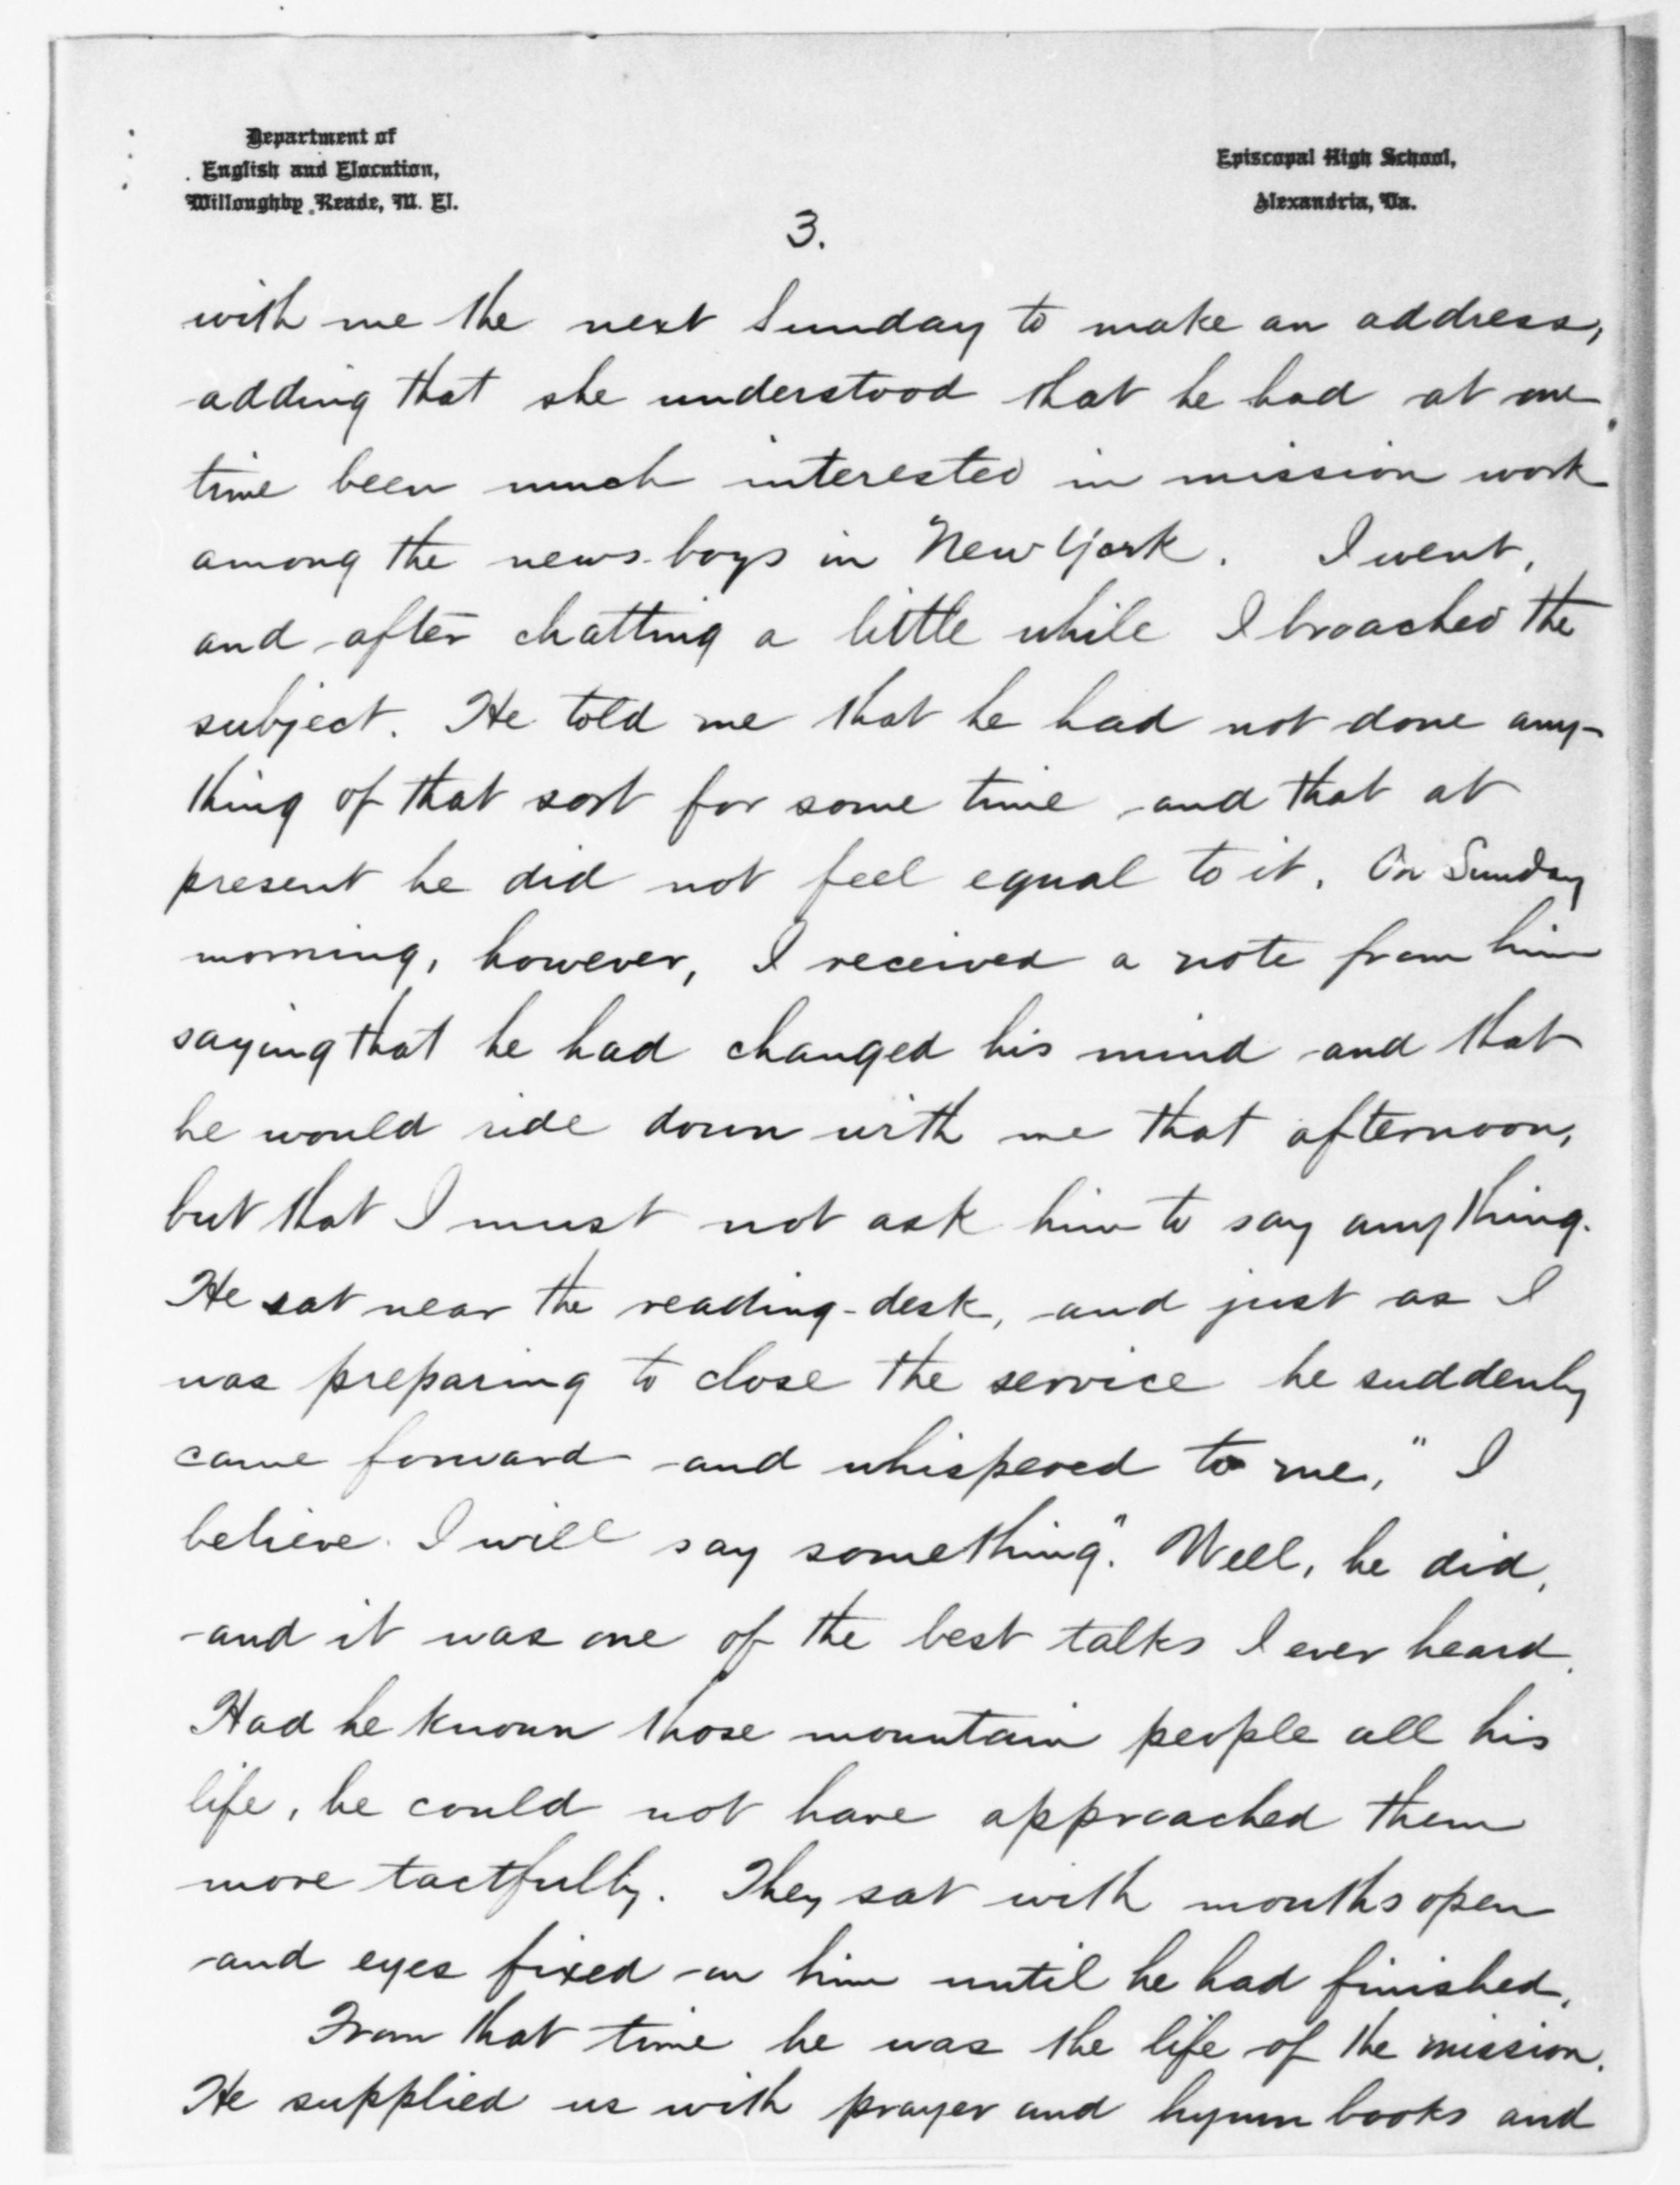 Department of
English and Elocution,
Willoughby Reade, M. El.
Episcopal High School,
Alexandria, Va.
3.
with me the next Sunday to make an address,
adding that she understood that he had at one
time been much interested in mission work
among the news-boys in New York. I went,
and after chatting a little while I broached the
subject. He told me that he had not done any-
thing of that sort for some time and that at
present he did not feel equal to it. On Sunday
morning, however, I received a note from him
saying that he had changed his mind and that
he would ride down with me that afternoon,
but that I must not ask him to say anything.
He sat near the reading-desk, and just as I
was preparing to close the service he suddenly
came forward and whispered to me, "I
believe I will say something". Well, he did,
and it was one of the best talks I ever heard.
Had he known those mountain people all his
life, he could not have approached them
more tactfully. They sat with mouths open
and eyes fixed on him until he had finished.
From that time he was the life of the mission.
He supplied us with prayer and hymn books and